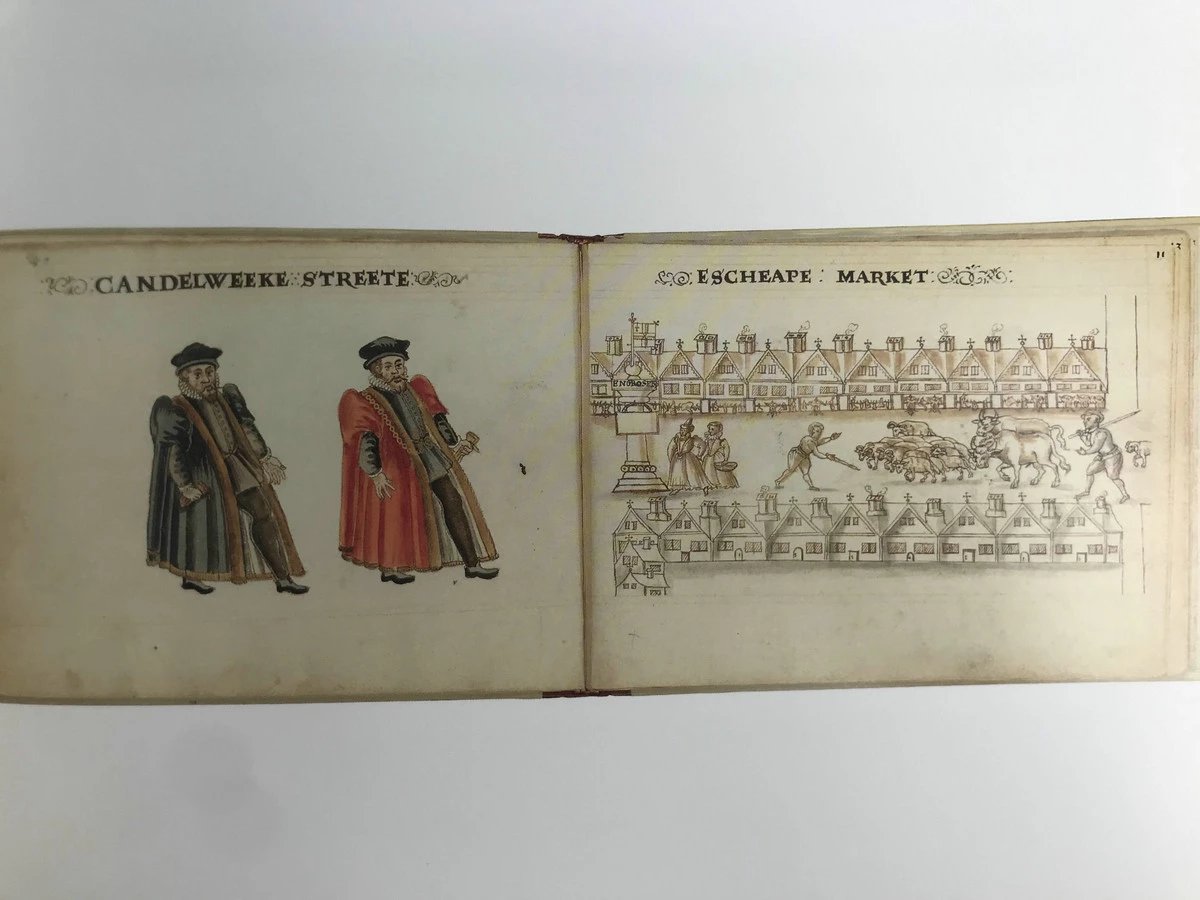 CANDELWEEKE STREETE
ESCHEAPE : MARKET
11
ENGROSERS